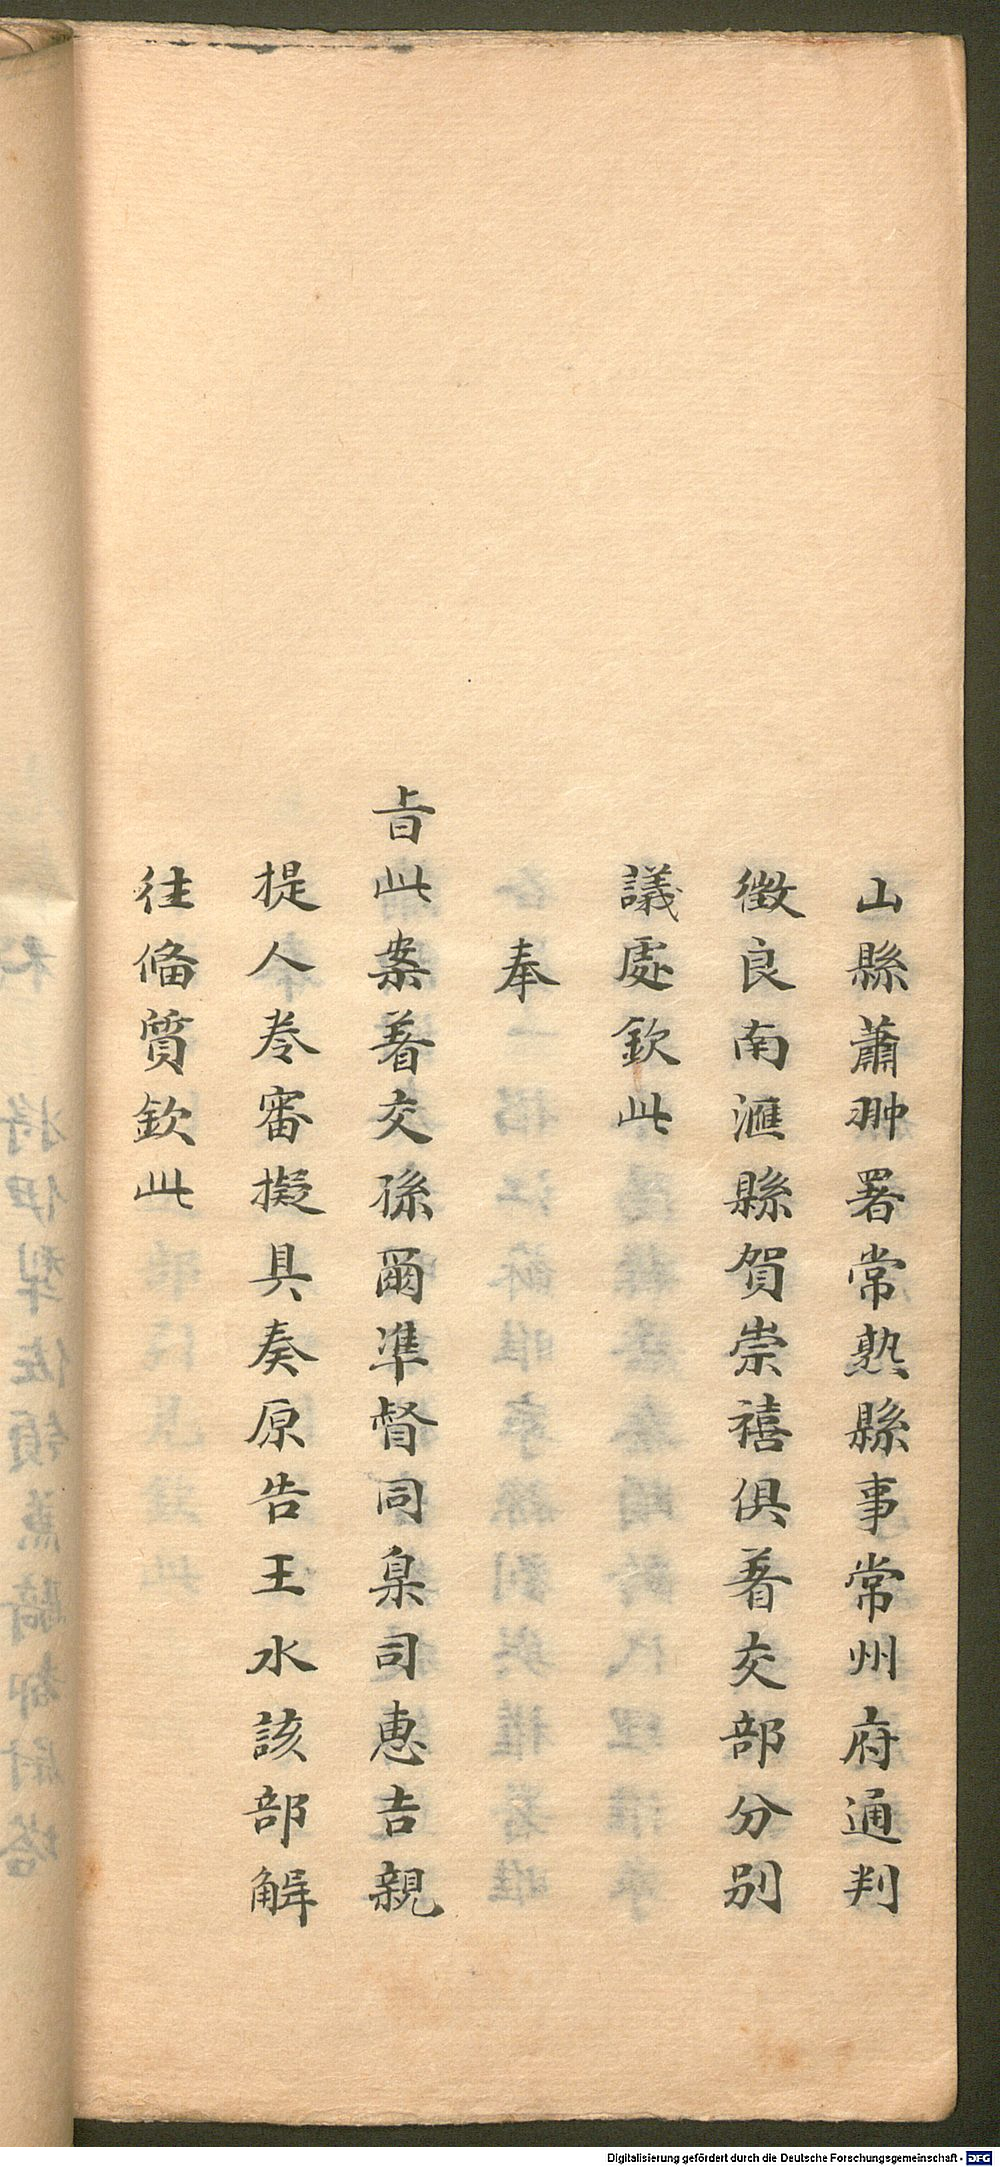 山縣蕭翀署常熟縣事常州府通判
徵良南滙縣賀崇禧俱著交部分別
議處欽此
奉
旨此案著交孫爾準督同臬司惠吉親
提人卷審擬具奏原告王水該部解
往俻質欽此
Digitalisierung gefördert durch die Deutsche Forschungsgemeinschaft - DFG